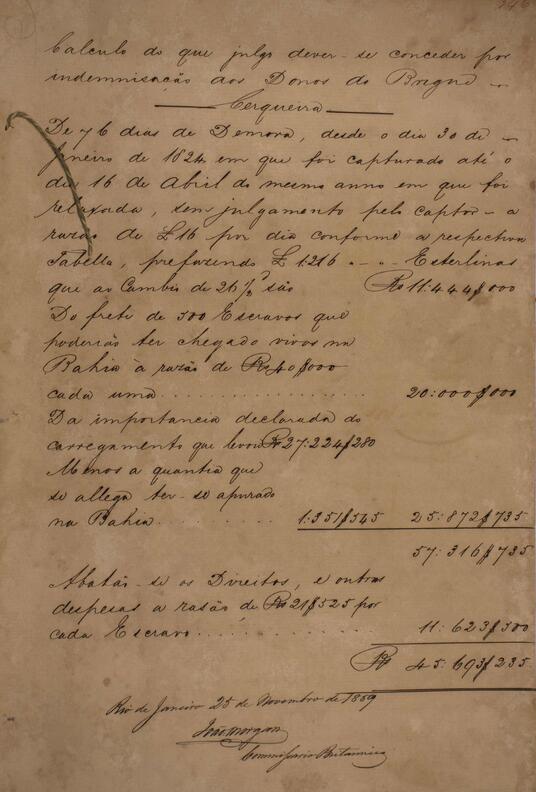 Calculo do que julgo dever-se conceder por
indemnisação aos Donos do Brigue
Cerqueira
De 76 dias de Demora, desde o dia 30 de
Janeiro de 1824 em que foi capturado até o
dia 16 de Abril do mesmo anno em que foi
relaxada, sem julgamento pelo captor - a
razão de £16 por dia conforme a respectiva
Tabella, prefazendo £1.216 " - " Esterlinas
que ao Cambio de são Rs 11:444$000
Do frete de 500 Escravos que
poderião ter chegado vivos na
Bahia à razão de Rs 40$000
cada uma 20:000$000
Da importancia declarada do
carregamento que levou Rs 27:224$280
Menos a quantia que
se allega ter-se apurado
na Bahia 1:351$545 25:872$735
57:316$735
Abatão-se os Direitos, e outras
despesas a rasão de Rs 21$525 por
cada Escravo 11:623$500
Rs 45:693$235
Rio de Janeiro 25 de Novembro de 1859
João Morgan
Commissario Britannico